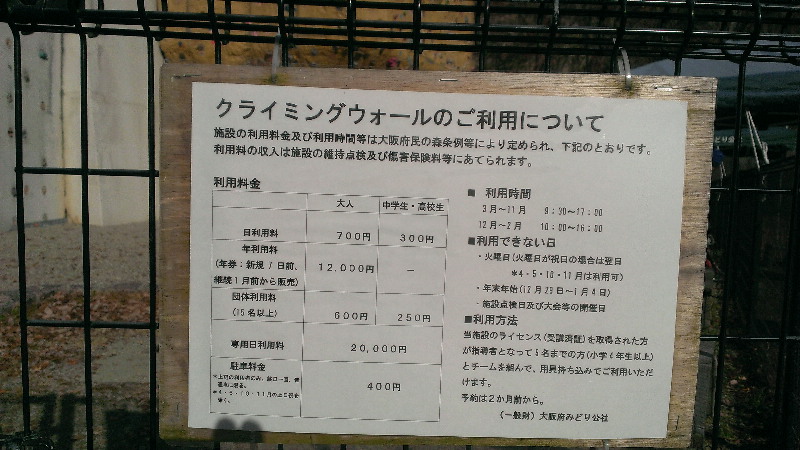 クライミングウォールのご利用について
施設の利用料金及び利用時間等は大阪府民の森条例等により定められ、下記のとおりです。
利用料の収入は施設の維持点検及び傷害保険料等にあてられます。
利用料金
大人 中学生・高校生
日利用料 700円 300円
年利用料
(年券:新規/日前、
継続1月前から販売) 12,000円 －
団体利用料
(15名以上) 600円 250円
専用日利用料 20,000円
駐車料金 400円
■ 利用時間
3月～11月 9:30～17:00
12月～2月 10:00～16:00
■利用できない日
・火曜日(火曜日が祝日の場合は翌日
※4・5・10・11月は利用可)
・年末年始(12月29日～1月4日)
・施設点検日及び大会等の開催日
■利用方法
当施設のライセンス(受講済証)を取得された方
が指導者となって 名までの方(小学 年生以上)
とチームを組んで、用具持ち込みでご利用いただ
けます。
予約は2か月前から。
(一般財)大阪府みどり公社